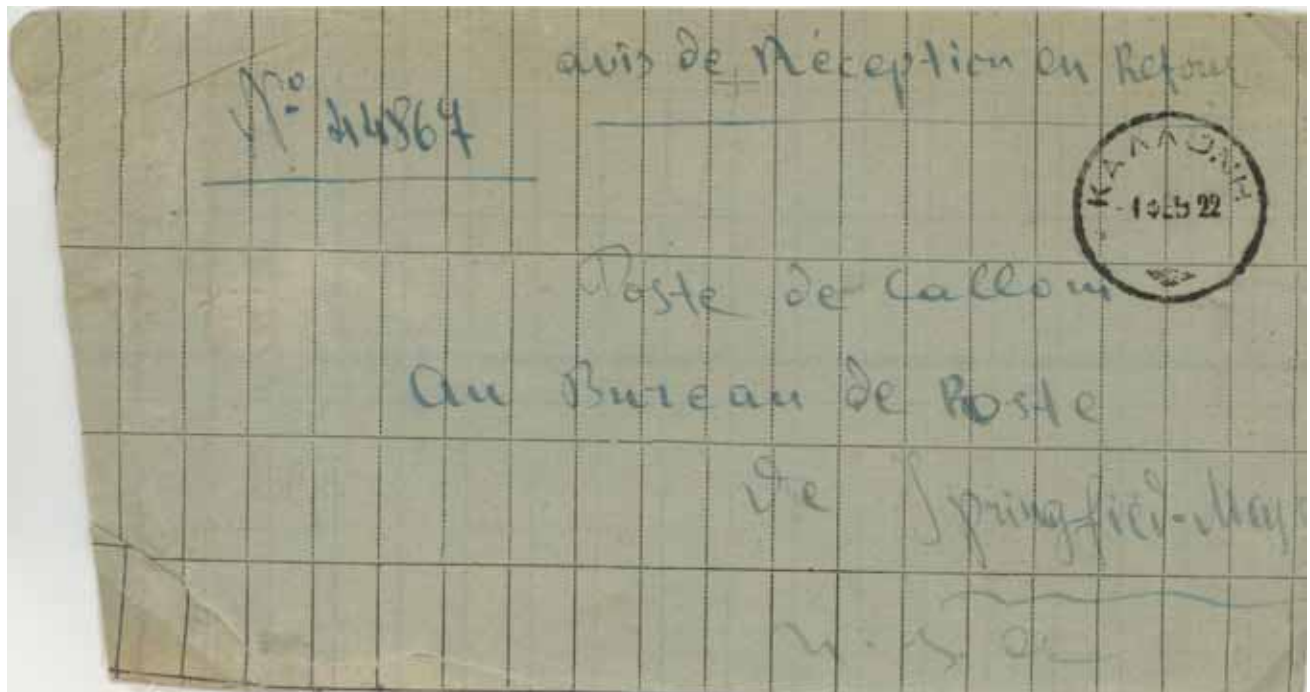 avis de Réception en Retour
Nº 44867
ΚΑΛΛΟΝΗ
-1 ΦΕΒ 22
Poste de Calloni
au Bureau de Poste
de Springfield-Mass
U.S.A.